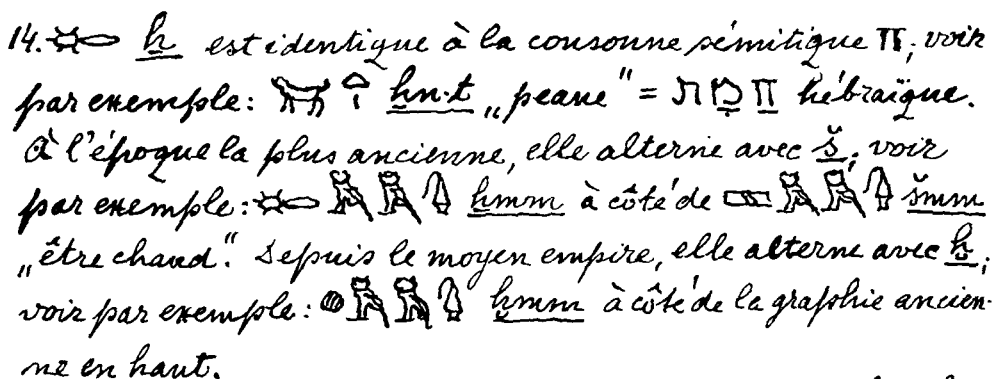 14. 𓄡 ẖ est identique à la consonne sémitique ח; voir
par exemple: 𓄚𓏏 ẖn·t „peaue" = חמת hébraïque.
À l'époque la plus ancienne, elle alterne avec š; voir
par exemple: 𓄡𓅓𓅓𓊮 ẖmm à côté de 𓈙𓅓𓅓𓊮 šmm
„être chaud". Depuis le moyen empire, elle alterne avec ḫ;
voir par exemple: 𓐍𓅓𓅓𓊮 ḫmm à côté de la graphie ancien-
ne en haut.